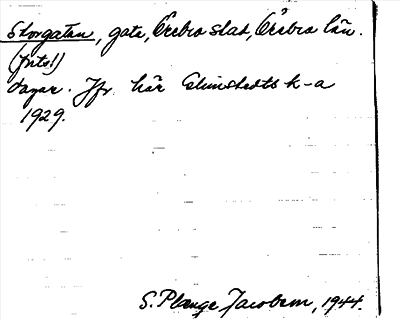 Storgatan, gata, Örebro stad, Örebro län.
(forts!)
dagar. Jfr här Elmstedts k-a
1929.
S. Plange Jacobson, 1944.